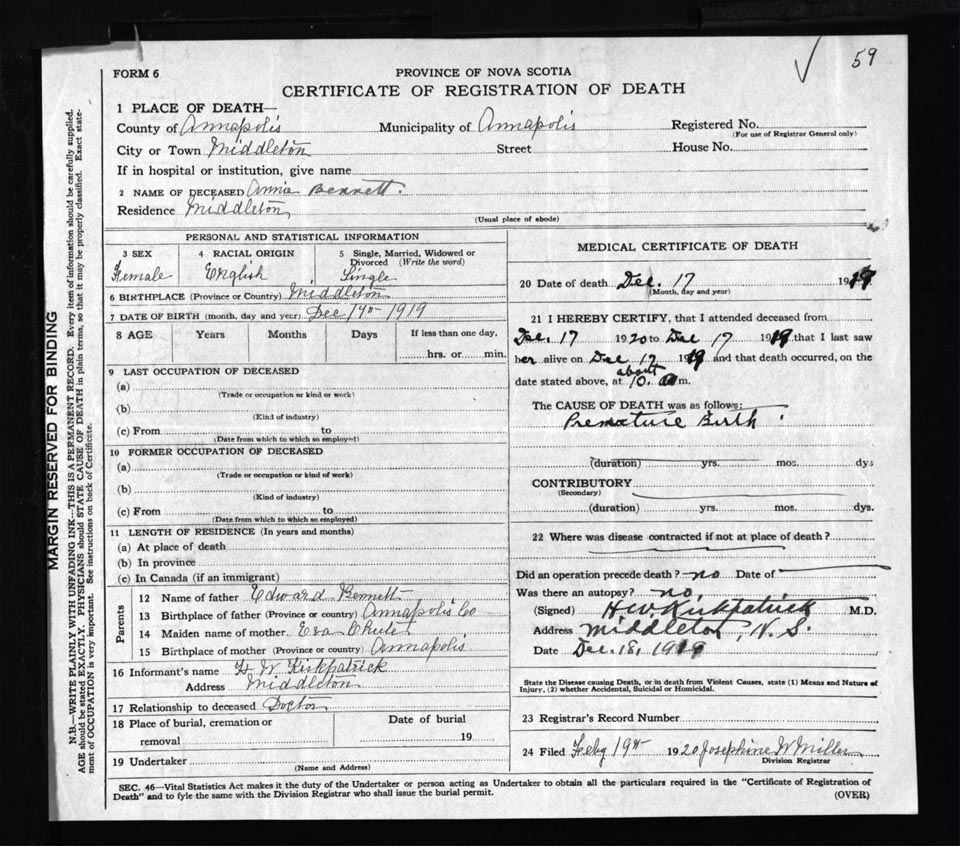 59
FORM 6
PROVINCE OF NOVA SCOTIA
CERTIFICATE OF REGISTRATION OF DEATH
1 PLACE OF DEATH—
County of Annapolis Municipality of Annapolis Registered No.
(For use of Registrar General only)
City or Town Middleton Street House No.
If in hospital or institution, give name
2 NAME OF DECEASED Annie Bennett.
Residence Middleton
(Usual place of abode)
PERSONAL AND STATISTICAL INFORMATION
3 SEX 4 RACIAL ORIGIN 5 Single, Married, Widowed or
Divorced (Write the word)
Female English Single
6 BIRTHPLACE (Province or Country) Middleton
7 DATE OF BIRTH (month, day and year) Dec 1919
8 AGE Years Months Days If less than one day,
hrs. or min.
9 LAST OCCUPATION OF DECEASED
(a)
(Trade or occupation or kind or work)
(b)
(Kind of industry)
(c) From to
(Date from which to which so employed)
10 FORMER OCCUPATION OF DECEASED
(a)
(Trade or occupation or kind of work)
(b)
(Kind of industry)
(c) From to
(Date from which to which so employed)
11 LENGTH OF RESIDENCE (In years and months)
(a) At place of death
(b) In province
(c) In Canada (if an immigrant)
Parents
12 Name of father Edward Bennett
13 Birthplace of father (Province or country) Annapolis Co
14 Maiden name of mother Eva Chute
15 Birthplace of mother (Province or country) Annapolis
16 Informant's name H W Kirkpatrick
Address Middleton
17 Relationship to deceased Doctor
18 Place of burial, cremation or Date of burial
removal 19
19 Undertaker
(Name and Address)
MEDICAL CERTIFICATE OF DEATH
20 Date of death Dec. 17 1919
(Month, day and year)
21 I HEREBY CERTIFY, that I attended deceased from
Dec. 17 1920 to Dec 17 1919 that I last saw
her alive on Dec 17 1919 and that death occurred, on the
about
date stated above, at 10. a m.
The CAUSE OF DEATH was as follows:
Premature Birth
(duration) yrs. mos. dys
CONTRIBUTORY
(Secondary)
(duration) yrs. mos. dys.
22 Where was disease contracted if not at place of death?
Did an operation precede death? no Date of
Was there an autopsy? no.
(Signed) H.W. Kirkpatrick M.D.
Address Middleton, N.S.
Date Dec. 18, 1919
State the Disease causing Death, or in death from Violent Causes, state (1) Means and Nature of
Injury, (2) whether Accidental, Suicidal or Homicidal.
23 Registrar's Record Number
24 Filed Feby 19th 1920 Josephine W Miller
Division Registrar
SEC. 46—Vital Statistics Act makes it the duty of the Undertaker or person acting as Undertaker to obtain all the particulars required in the "Certificate of Registration of
Death" and to fyle the same with the Division Registrar who shall issue the burial permit.
(OVER)
MARGIN RESERVED FOR BINDING
N.B.—WRITE PLAINLY WITH UNFADING INK—THIS IS A PERMANENT RECORD. Every item of information should be carefully supplied.
AGE should be stated EXACTLY. PHYSICIANS should STATE CAUSE OF DEATH in plain terms, so that it may be properly classified. Exact state-
ment of OCCUPATION is very important. See instructions on back of Certificate.